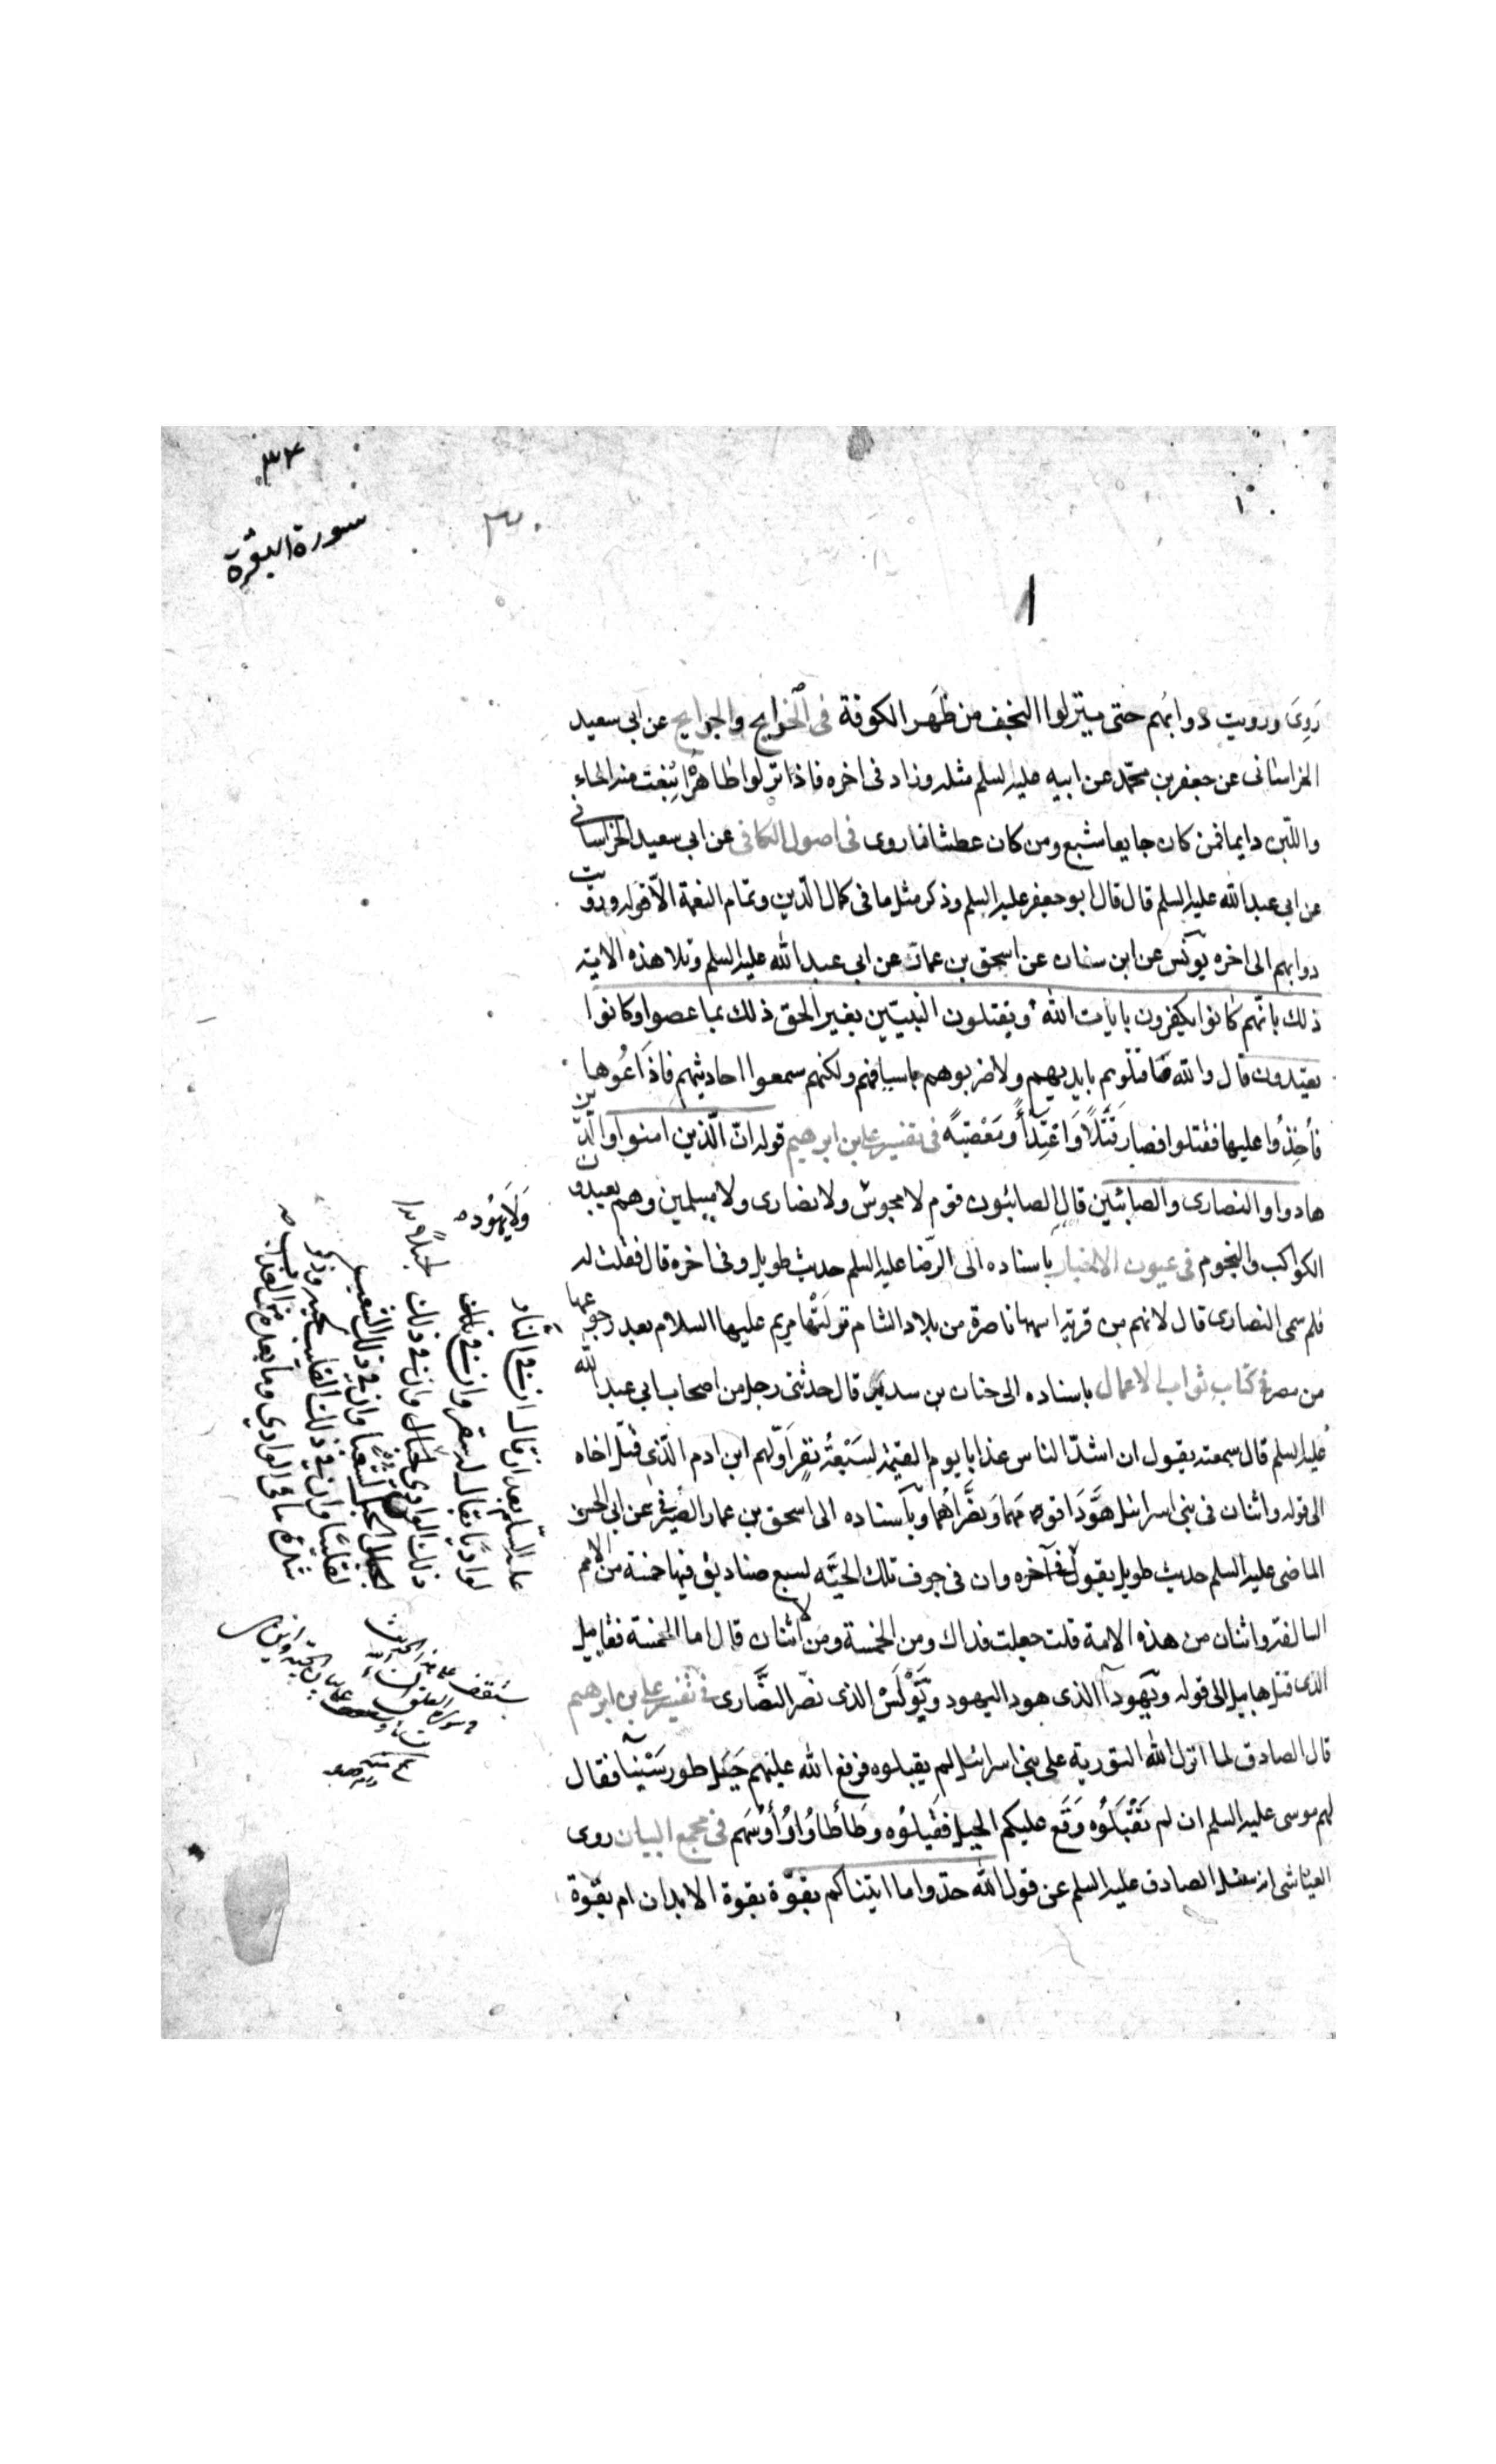 ٣٢
سورة البقرة
٣٠
١
رَوِىَ ورويت دوابهم حتى ينزلوا النجف من ظهر الكوفة فى الخرايج والجرايح عن ابى سعيد
الخراسانى عن جعفر بن محمّد عن ابيه عليه السلم مثله وزاد فى اخره فاذا نزلوا ظاهره انبعث منه الماء
واللبن دايما فمن كان جايعا شبع ومن كان عطشانا روى فى اصول الكافى عن ابى سعيد الخراسانى
عن ابى عبد الله عليه السلم قال قال ابو جعفر عليه السلم وذكر مثل ما فى كمال الدّين وتمام النعمة الّا قوله ورويت
دوابهم الى اخره يونس عن ابن سنان عن اسحق بن عمار عن ابى عبد الله عليه السلم وتلا هذه الاية
ذلك بانّهم كانوا يكفرون بايات الله ويقتلون النبيّين بغير الحق ذلك بما عصوا وكانوا
يعتدون قال والله ما قتلوهم بايديهم ولا ضربوهم باسيافهم ولكنهم سمعوا احاديثهم فاذاعُوها
فأُخِذُوا عليها فقتلوا فصار قَتْلًا وَاعْتِدَاءً ومَعْصِيَةً فى تفسير على بن ابرهيم قوله انّ الّذين امنوا والّذين
هادوا والنصارى والصابئين قال الصابئون قوم لا مجوس ولا نصارى ولا مسلمين وهم يعبدون
الكواكب والنجوم فى عيون الاخبار باسناده الى الرّضا عليه السلم حديث طويل وفى اخره قال فقلت له
فلم سمى النصارى قال لانهم من قرية اسمها ناصرة من بلاد الشام نزلتها مريم عليها السلام بعد رجوعها
من مصر فى كتاب ثواب الاعمال باسناده الى حنان بن سدير قال حدثنى رجل من اصحاب ابى عبد الله
عليه السلم قال سمعته يقول ان اشدّ الناس عذابا يوم القيمة لسَبْعَةُ نفر اوّلهم ابن ادم الّذى قتل اخاه
الى قوله واثنان فى بنى اسرائيل هَوَّدَا قومهما وَنَصَّرَاهُما وباسناده الى اسحق بن عمار الصيرفى عن ابى الحسن
الماضى عليه السلم حديث طويل يقول فى آخره وان فى جوف تلك الحيّه لسبع صناديق فيها خمسة من الامم
السالفة واثنان من هذه الامة قلت جعلت فداك ومن الخمسة ومن الاثنان قال اما الخمسة فقابيل
الذى قتل هابيل الى قوله ويهودا الذى هود اليهود وبَوْلَس الذى نصّر النصارى فى تفسير على بن ابرهيم
قال الصادق لما انزل الله التورية على بنى اسرائيل لم يقبلوه فرفع الله عليهم جَبَل طور سَيْنا فقال
لهم موسى عليه السلم ان لم تَقْبَلُوه وَقَع عليكم الجبل فقبلُوه وطأطأوا رُؤُسَهم فى مجمع البيان روى
العياشى انه سئل الصادق عليه السلم عن قول الله خذوا ما اتيناكم بقوّة بقوة الابدان ام بقوة
وَلَا يَهُود
عليه السّلم بعد ان قال ان فى النار
لواديًا يقال له سقر وان فى تلك
ذلك الوادى لجبل وان فى ذلك
الجبل لشعبا وان فى ذلك الشعب
لقليبًا وان فى ذلك القليب لحية وذكر
شدة ما فى الوادى وما بعده من العذاب
ستقف على هذا الحديث